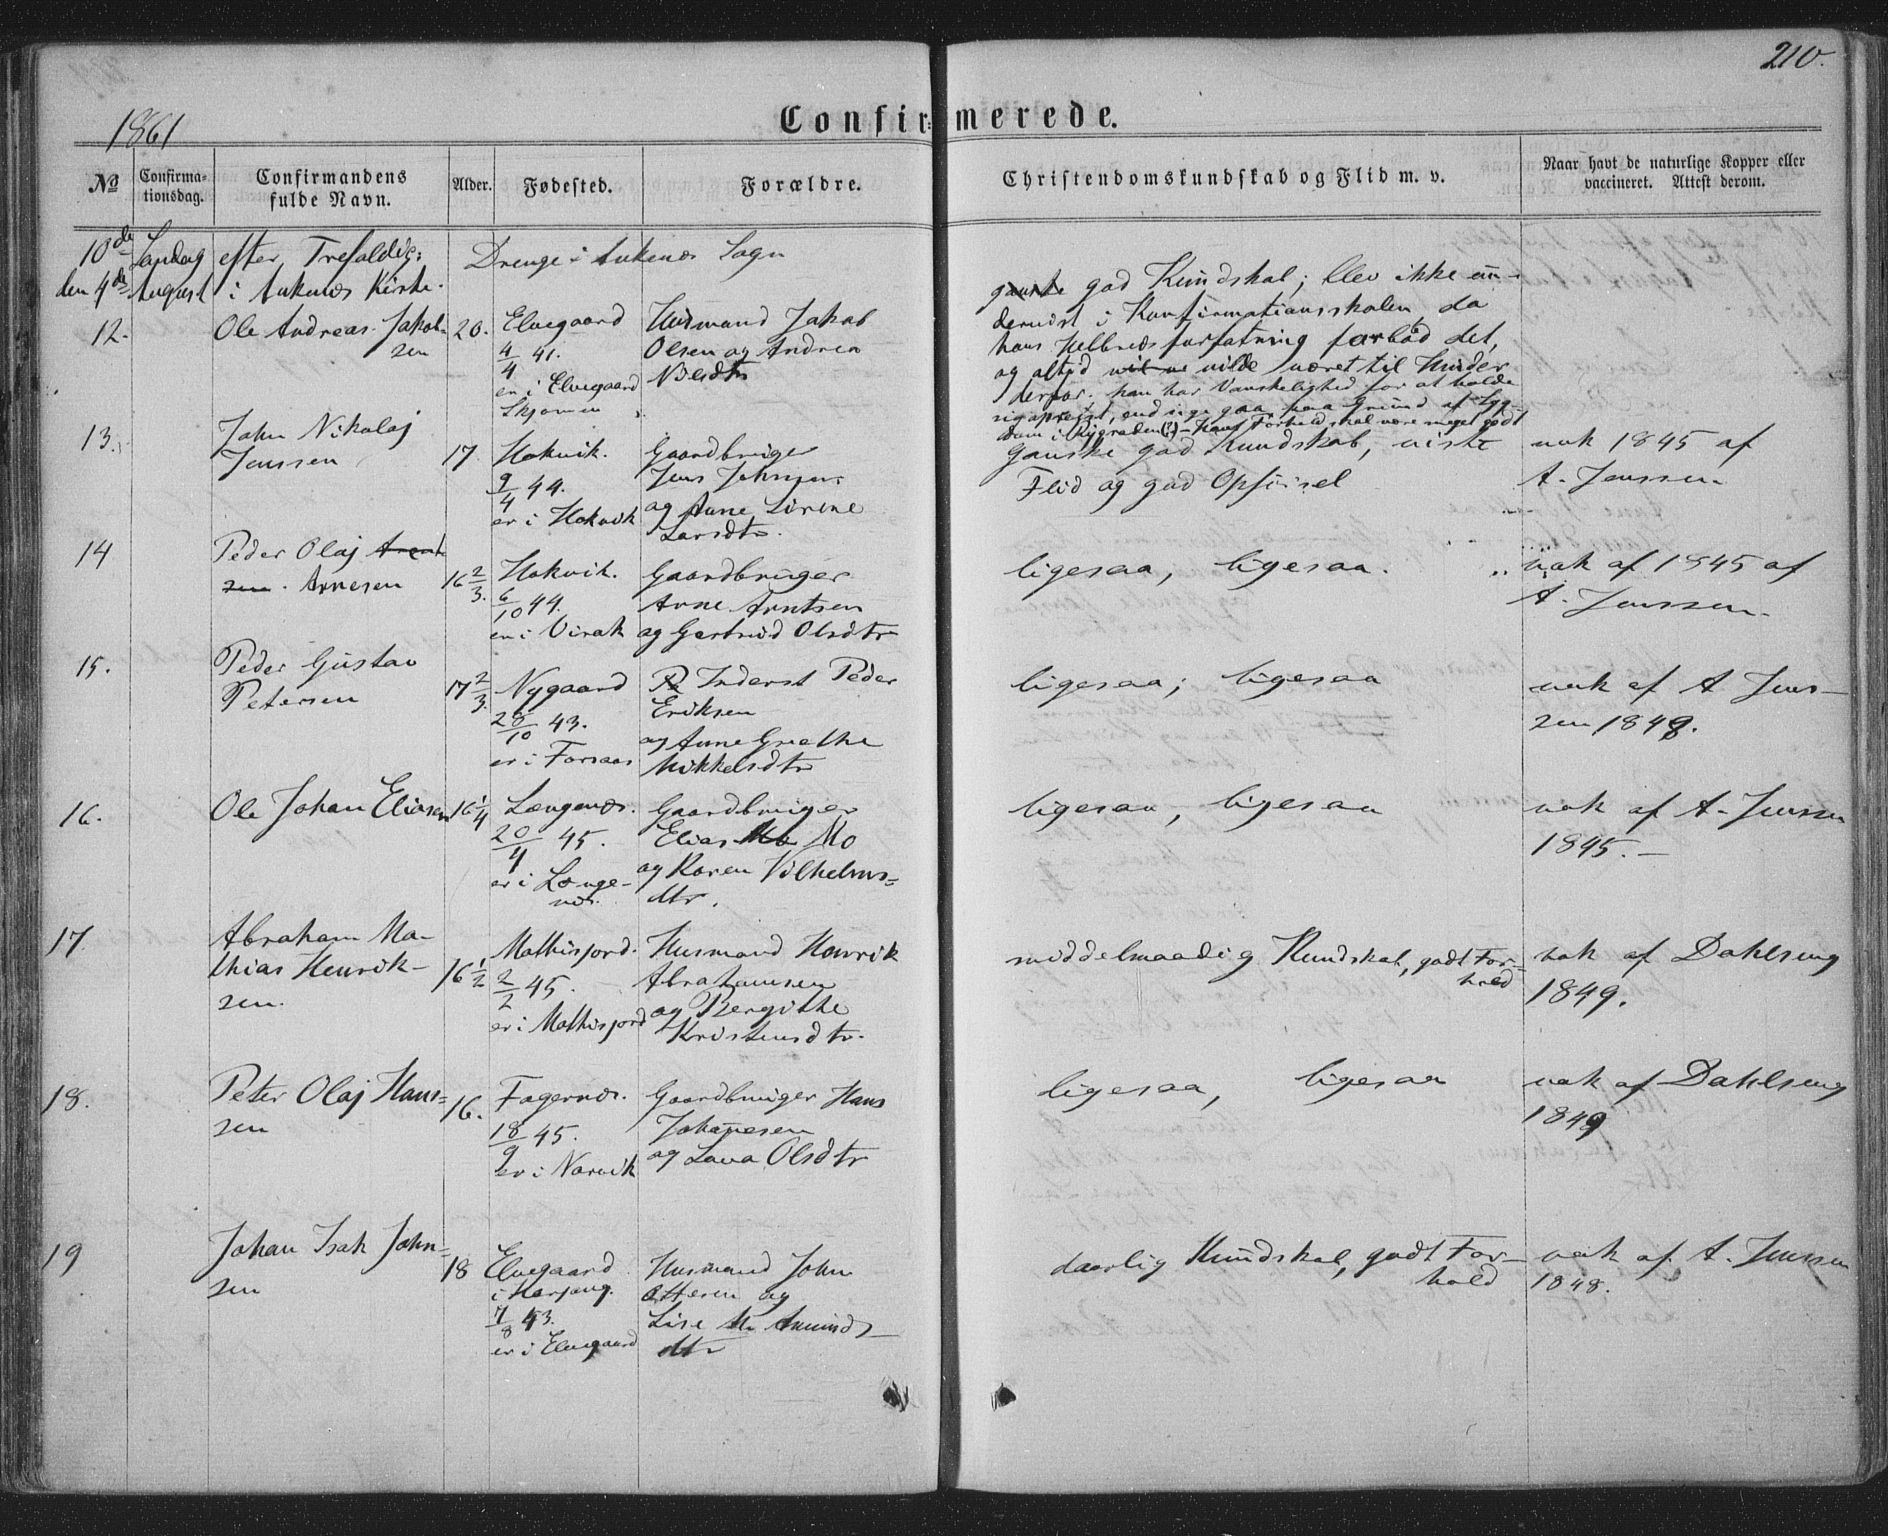 210.
1861
Confir=merede.
No
Confirma-
tionsdag.
Confirmandens
fulde Navn.
Alder.
Fødested.
Forældre.
Christendomskundskab og Flid m. v.
Naar havt de naturlige Kopper eller
vaccineret. Attest derom.
10de Søndag efter Trefoldigh:
Drenge i Ankenæs Sogn
den 4de August i Ankenæs Kirke.
12.
Ole Andreas Jakob-
sen
20.
Elvegaard
4/4 41.
er i Elvegaard
Skjomen
Husmand Jakob
Olsen og Andrea
Nilsdtr
god Kundskab; blev ikke un-
dervist i Konfirmationsskolen, da
hans Helbredsforfatning forbød det,
og altid vilde været til Hinder
derfor. han har Vanskelighed for at holde
sig opreist, end sige gaa, paa Grund af Syg-
dom i Rygraden(?) - hans Forhold skal være meget godt
13.
John Nikolaj
Jenssen
17.
Hokvik.
9/4 44.
er i Hokvik
Gaardbruger
Jens Johnsen
og Anne Sirine
Larsdtr.
Ganske god Kundskab, viste
Flid og god Opførsel
vak 1845 af
A. Jenssen
14
Peder Olaj
Arnesen
16 2/3.
Hokvik.
6/10 44.
er i Virak
Gaardbruger
Arne Arntsen
og Gertrud Olsdtr
ligesaa, ligesaa.
vak af 1845 af
A. Jenssen.
15.
Peder Gustav
Petersen
17 2/3.
Nygaard
28/10 43.
er i Forsaas
Inderst Peder
Eriksen
og Anne Grethe
Mikkelsdtr
ligesaa; ligesaa
vak af A Jens-
sen 1849.
16.
Ole Johan Eliasen
16 1/4
Længenæs.
20/4 45.
er i Længe-
næs.
Gaardbruger
Elias Mo
og Karen Vilhelms=
dtr.
ligesaa, ligesaa
vak af A. Jenssen
1845.-
17.
Abraham Ma-
thias Henrik-
sen.
16 1/2
Mathisjord.
2/2 45.
er i Mathisjord
Husmand Henrik
Abrahamsen
og Bergithe
Kristensdtr.
middelmaadig Kundskab, godt For-
hold
vak af Dahlseng
1849.
18.
Peter Olaj Hans=
sen
16.
Fagernæs.
18/9 45.
er i Narvik
Gaardbruger Hans
Johannesen
og Lava Olsdtr
ligesaa, ligesaa
vak af Dahlseng
1849
19
Johan Isak John=
sen
18
Elvegaard
i Herjang.
7/8 43.
er i Elvegaard
Husmand John
Ottesen og
Lise Amunds-
dtr
daarlig Kundskab, godt For-
hold
vak af A. Jenssen
1848.